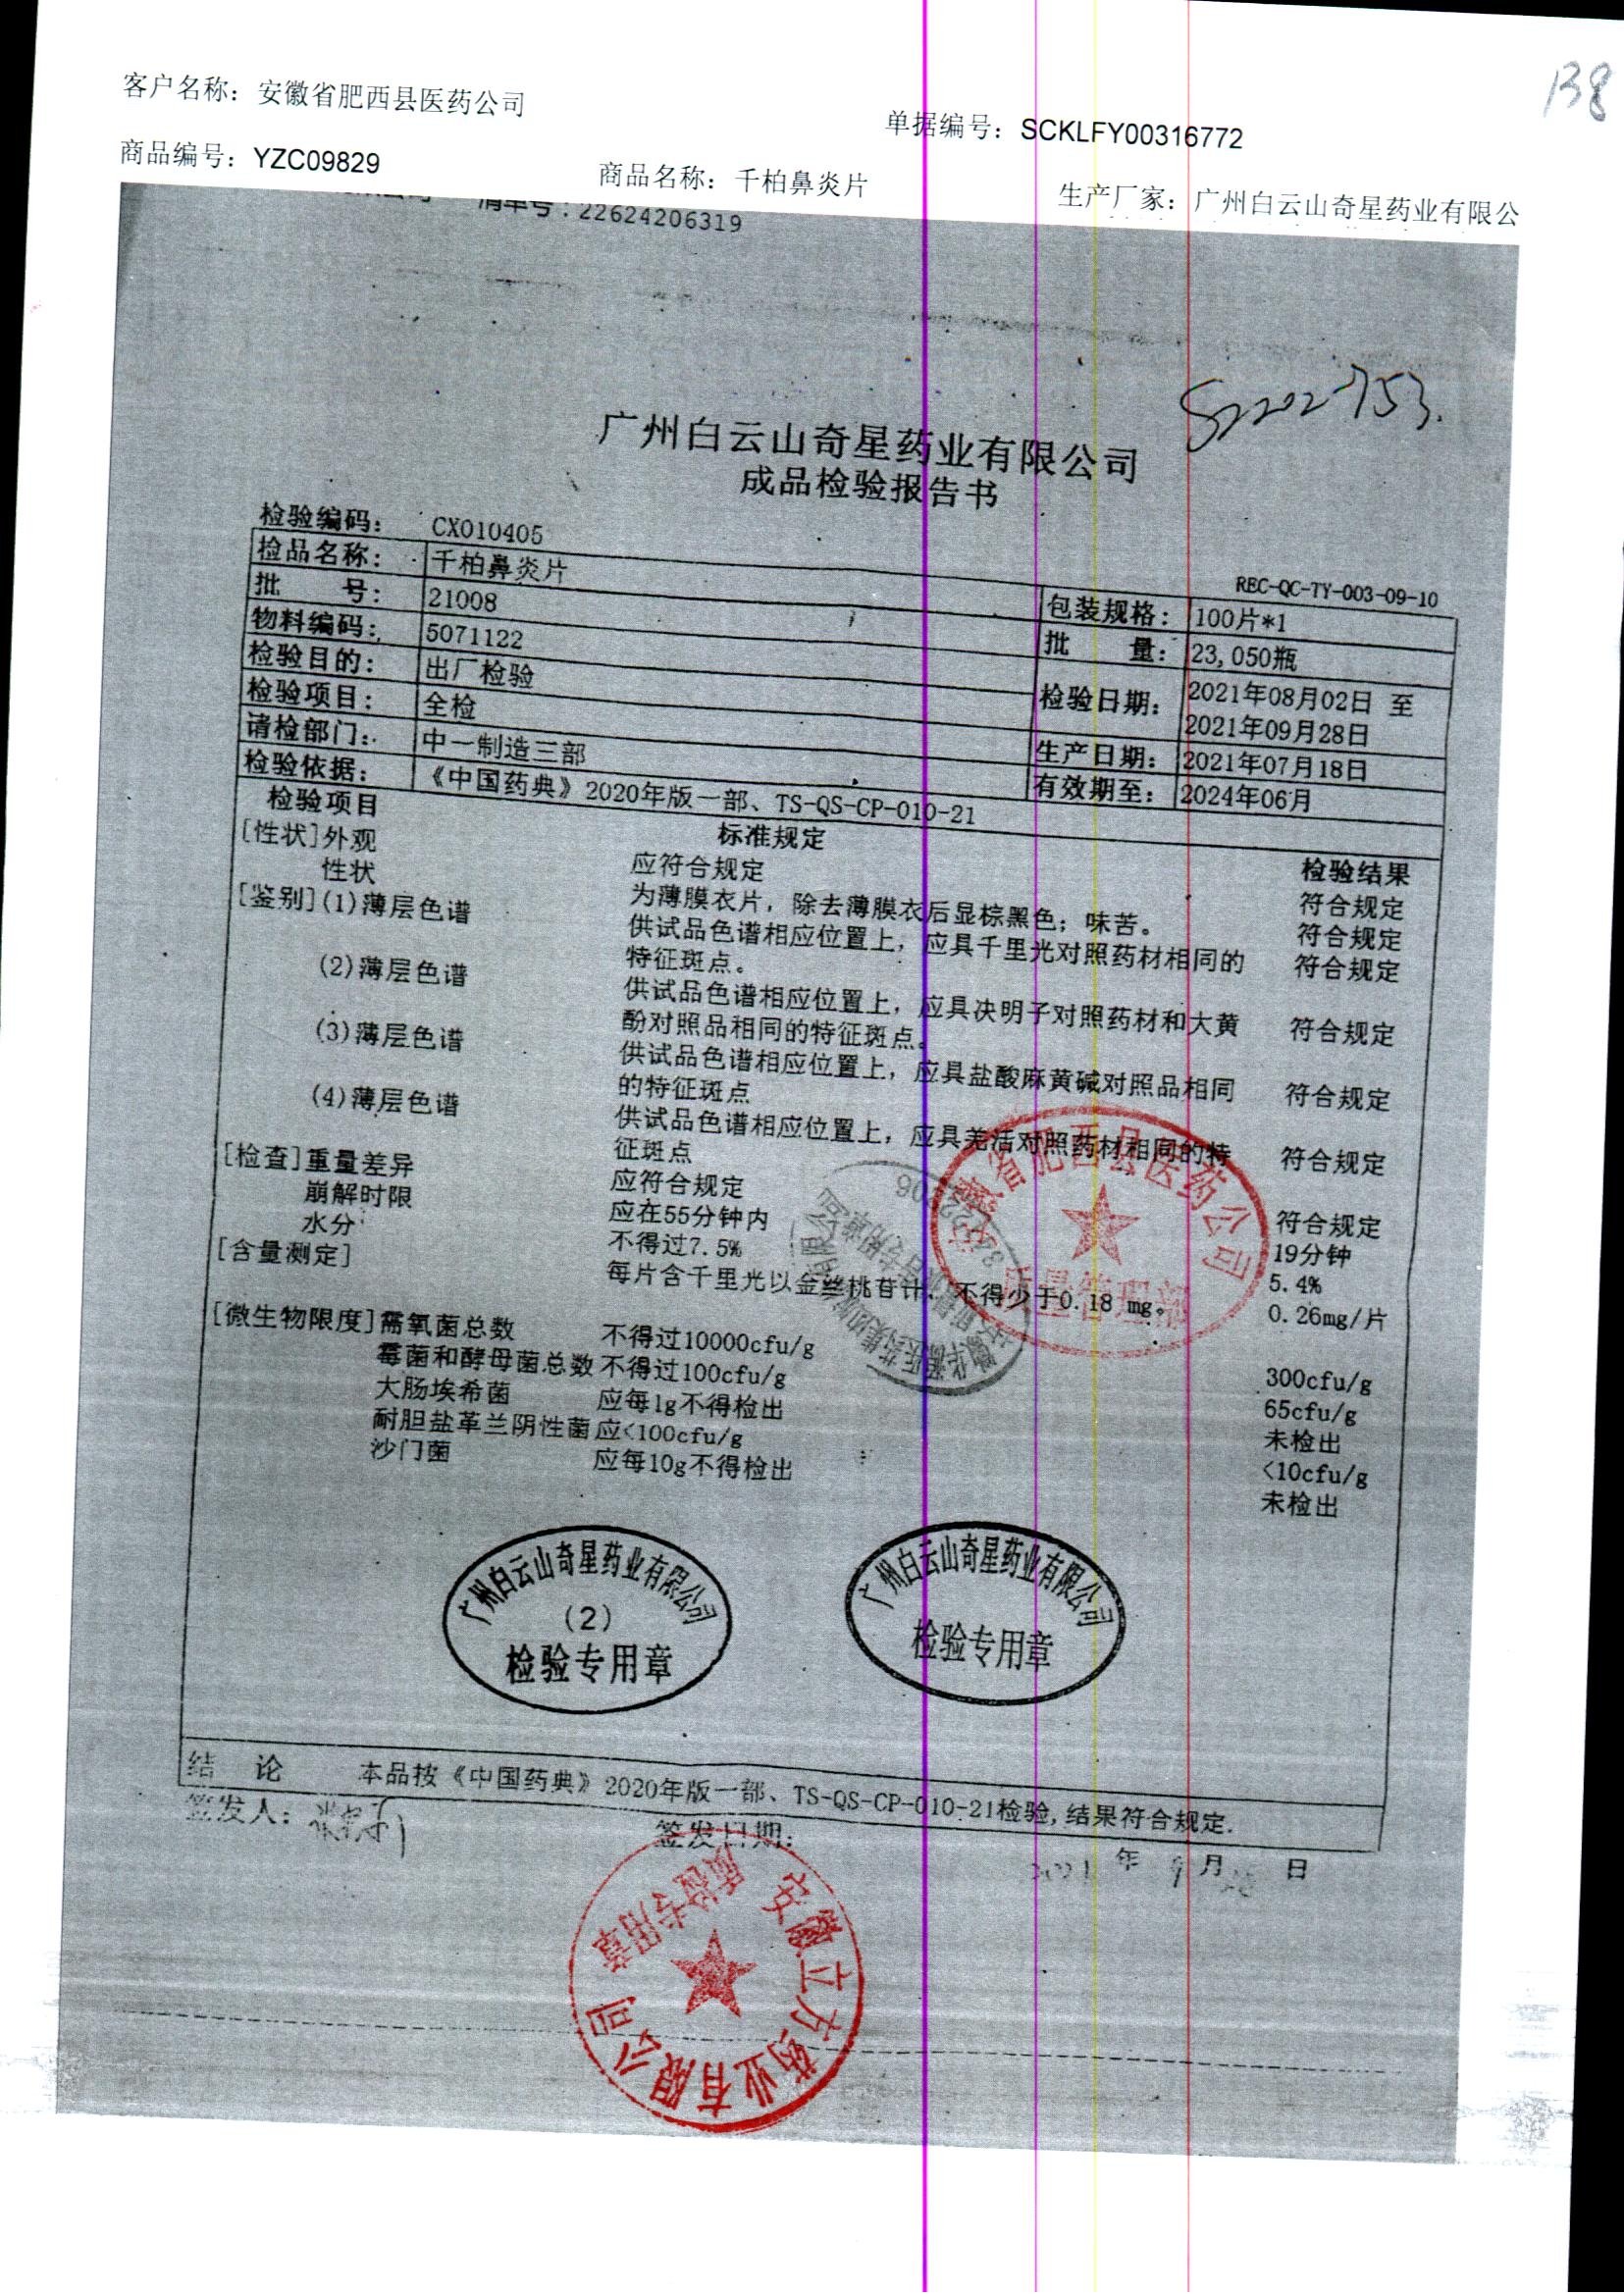 138
客户名称：安徽省肥西县医药公司
单据编号：SCKLFY00316772
商品编号：YZC09829
商品名称：千柏鼻炎片
生产厂家：广州白云山奇星药业有限公
清单号：22624206319
S2202753.
广州白云山奇星药业有限公司
成品检验报告书
检验编码： CX010405
REC-QC-TY-003-09-10
检品名称： 千柏鼻炎片 包装规格： 100片*1
批 号： 21008 批 量： 23,050瓶
物料编码： 5071122 检验日期： 2021年08月02日 至
检验目的： 出厂检验 2021年09月28日
检验项目： 全检 生产日期： 2021年07月18日
请检部门： 中一制造三部 有效期至： 2024年06月
检验依据： 《中国药典》2020年版一部、TS-QS-CP-010-21
检验项目 标准规定 检验结果
[性状]外观 应符合规定 符合规定
性状 为薄膜衣片，除去薄膜衣后显棕黑色；味苦。 符合规定
[鉴别](1)薄层色谱 供试品色谱相应位置上，应具千里光对照药材相同的 符合规定
特征斑点。
(2)薄层色谱 供试品色谱相应位置上，应具决明子对照药材和大黄 符合规定
酚对照品相同的特征斑点。
(3)薄层色谱 供试品色谱相应位置上，应具盐酸麻黄碱对照品相同 符合规定
的特征斑点
(4)薄层色谱 供试品色谱相应位置上，应具羌活对照药材相同的特 符合规定
征斑点
[检查]重量差异 应符合规定 符合规定
崩解时限 应在55分钟内 19分钟
水分 不得过7.5% 5.4%
[含量测定] 每片含千里光以金丝桃苷计，不得少于0.18 mg。 0.26mg/片
[微生物限度]需氧菌总数 不得过10000cfu/g 300cfu/g
霉菌和酵母菌总数 不得过100cfu/g 65cfu/g
大肠埃希菌 应每1g不得检出 未检出
耐胆盐革兰阴性菌 应<100cfu/g <10cfu/g
沙门菌 应每10g不得检出 未检出
安徽省肥西县医药公司
质量管理部
广州白云山奇星药业有限公司
(2)
检验专用章
广州白云山奇星药业有限公司
检验专用章
结 论 本品按《中国药典》2020年版一部、TS-QS-CP-010-21检验,结果符合规定.
签发人： 签发日期： 2021 年 9 月 28 日
安徽立方药业有限公司
质检专用章